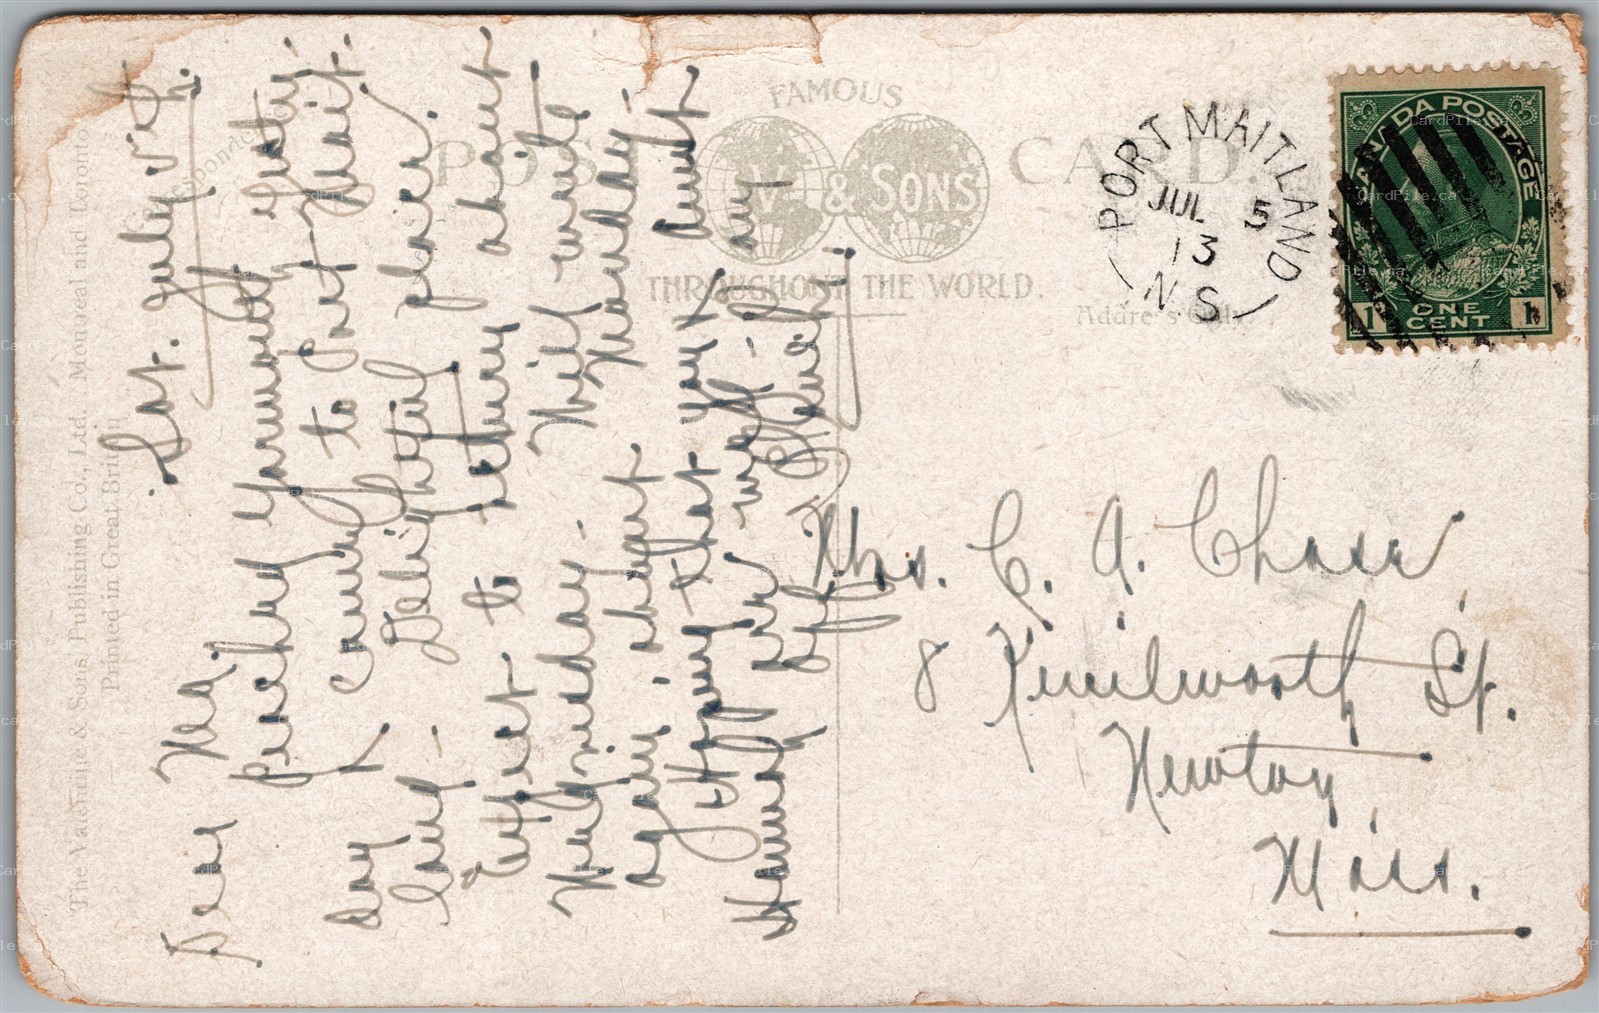 The Valentine & Sons Publishing Co., Ltd. Montreal and Toronto
Printed in Great Britain
POST CARD.
FAMOUS
V & SONS
THROUGHOUT THE WORLD.
Address Only.
PORT MAITLAND
JUL 5
13
N.S
CANADA POSTAGE
1 ONE CENT 1
Sat. July 5th.
Dear
Reached Yarmouth yesterday
& came to Port Mait-
land - Delightful place.
Expect to return about
Wednesday. Will write
again about Monday
Hoping that you & Aunt
are well
Mrs. C. A. Chase
8 Kenilworth St.
Newton,
Mass.
CardPile.ca